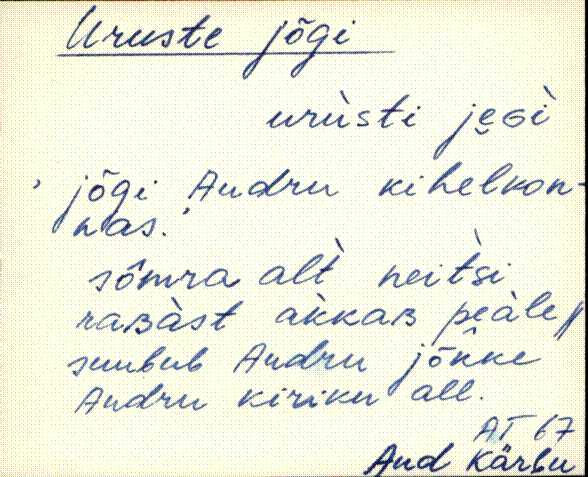 Uruste jõgi
urùsti je̮Gì
' jõgi Audru kihelkon-
nas.'
sômra alt̀ neitsi
raʙàst àkkaʙ peàle,
suubub Audru jõ̂kke
Audru kiriku all.
AT 67
Aud Kärbu